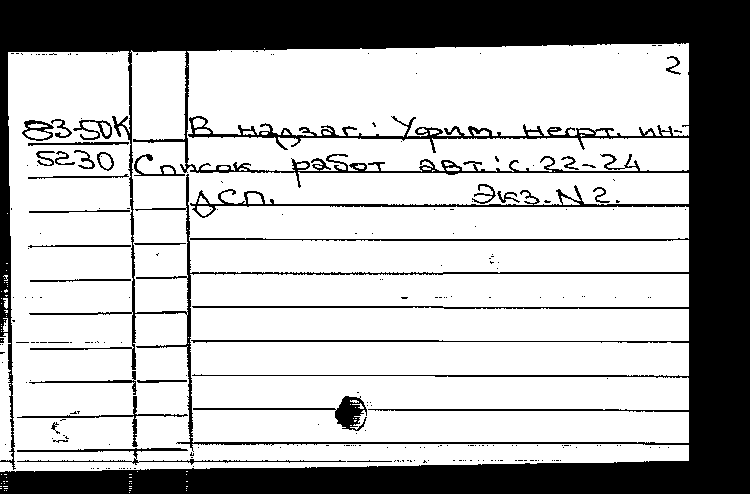 2
83-50К В надзаг.: Уфим. нефт. ин-т
5230 Список работ авт.: с. 22-24
ДСП. Экз. N2.